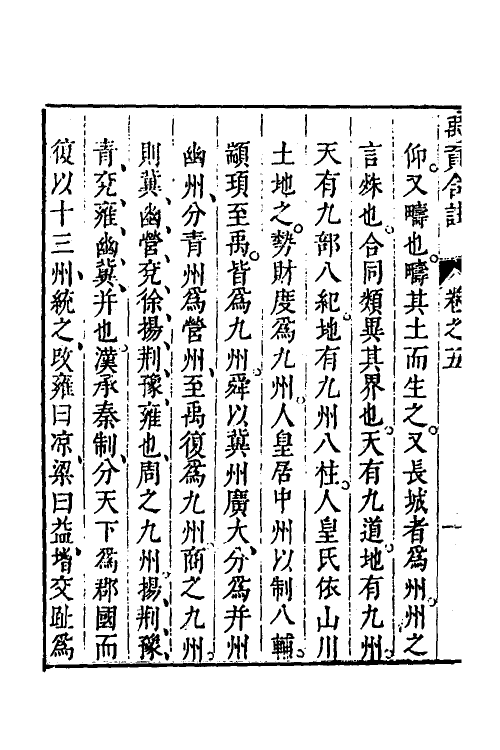 禹貢合註　卷之五　一
仰又疇也疇其土而生之又長坡者爲州州之
言殊也合同類異其界也天有九道地有九州
天有九部八紀地有九州八柱人皇氏依山川
土地之勢財度爲九州人皇居中州以制八輔
顓頊至禹皆爲九州舜以冀州廣大分爲并州
幽州分青州爲營州至禹復爲九州商之九州
則冀幽營兗徐揚荆豫雍也周之九州揚荆豫
青兗雍幽冀并也漢承秦制分天下爲郡國而
復以十三州統之攺雍曰凉梁曰益增交趾爲